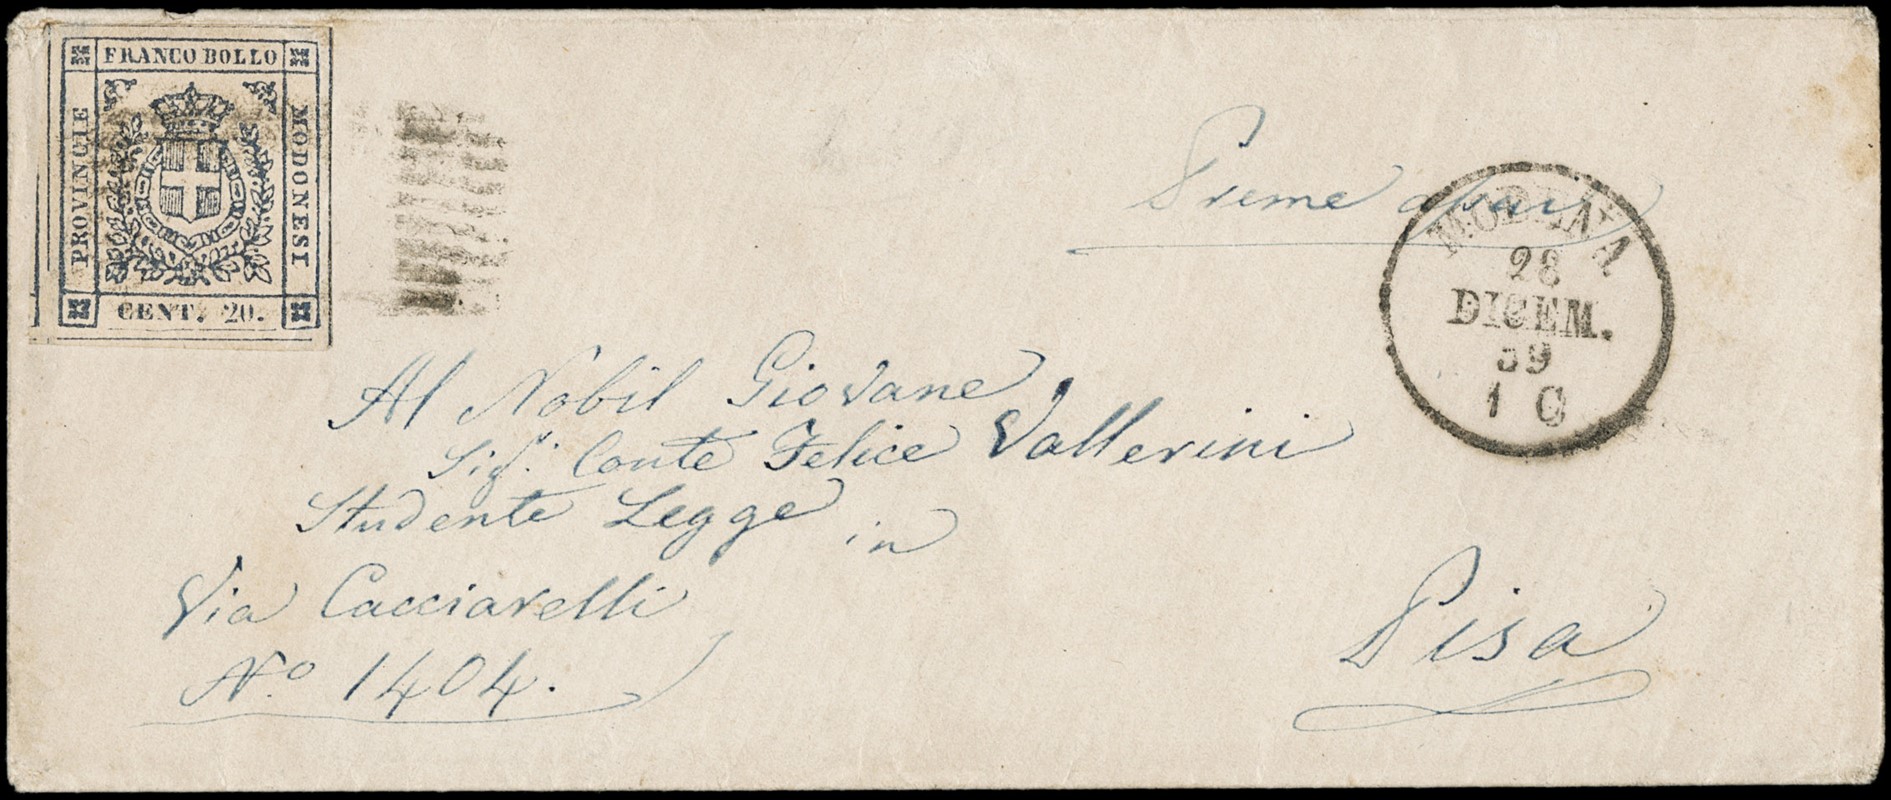 FRANCO BOLLO
PROVINCIE
MODONESI
CENT. 20.
Preme assai
MODENA
28
DICEM.
59
1 C
Al Nobil Giovane
Sig.r Conte Felice Vallerini
Studente Legge in
Via Cacciarelli
No 1404.
Pisa